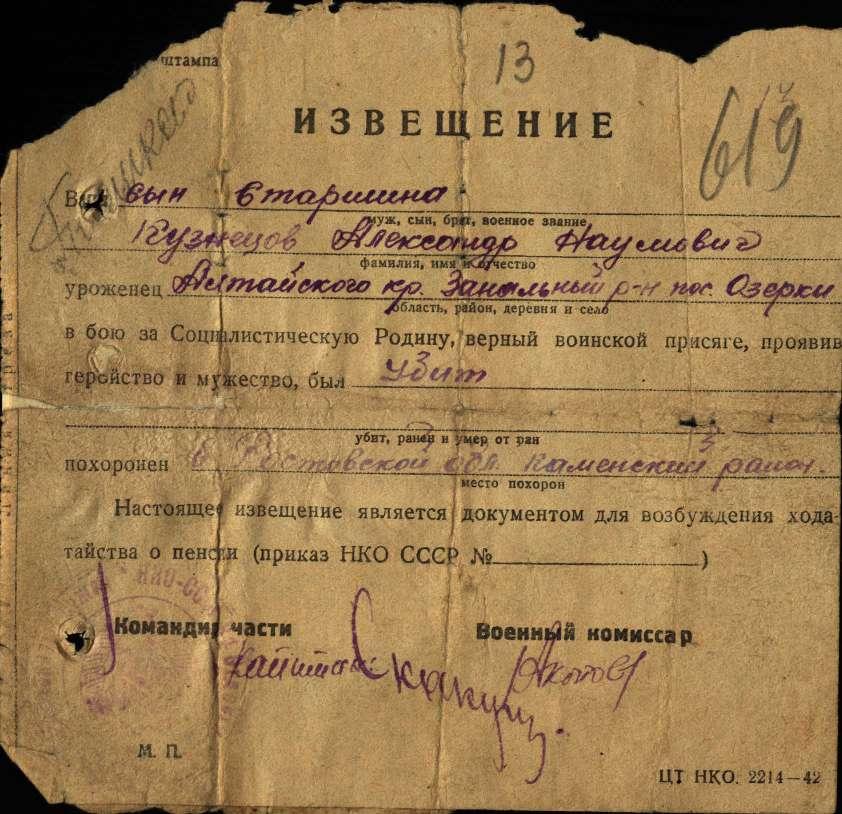 штампа
13
ИЗВЕЩЕНИЕ
619
Ваш сын старшина
муж, сын, брат, военное звание
Кузнецов Александр Наумович
фамилия, имя и отчество
уроженец Алтайского кр. р-н пос. Озерки
область, район, деревня и село
в бою за Социалистическую Родину, верный воинской присяге, проявив
геройство и мужество, был убит
убит, ранен и умер от ран
похоронен в Ростовской обл. Каменский район.
место похорон
Настоящее извещение является документом для возбуждения хода-
тайства о пенсии (приказ НКО СССР № )
Командир части Военный комиссар
капитан
М. П.
ЦТ НКО. 2214—42